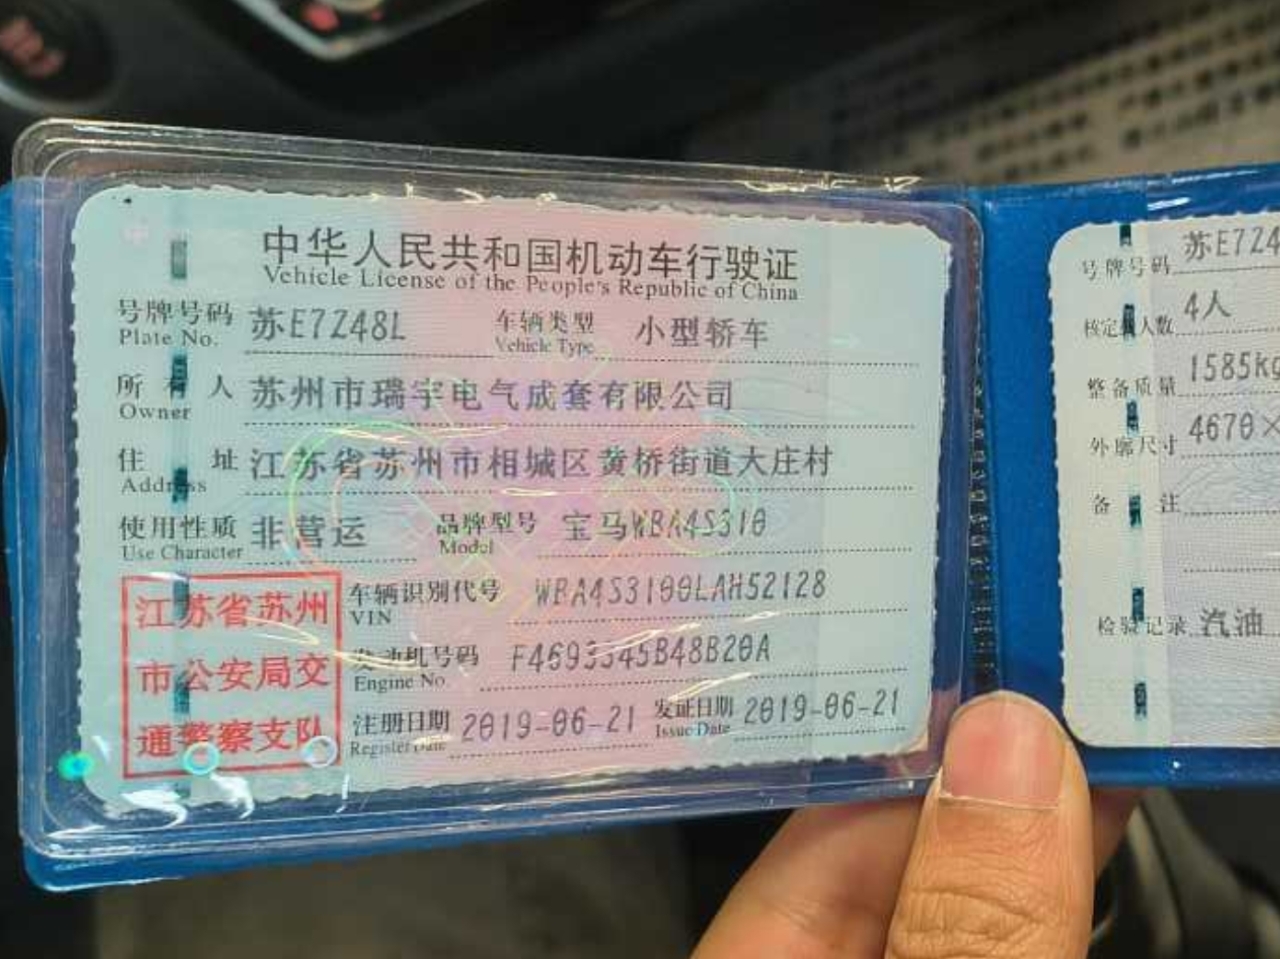 中华人民共和国机动车行驶证
Vehicle License of the People's Republic of China
号牌号码 苏E7Z48L 车辆类型 小型轿车
Plate No. Vehicle Type
所有人 苏州市瑞宇电气成套有限公司
Owner
住址 江苏省苏州市相城区黄桥街道大庄村
Address
使用性质 非营运 品牌型号 宝马WBA4S310
Use Character Model
江苏省苏州
市公安局交
通警察支队
车辆识别代号 WBA4S3100LAH52128
VIN
发动机号码 F4693345B48B20A
Engine No.
注册日期 2019-06-21 发证日期 2019-06-21
Register Date Issue Date
号牌号码 苏E7Z4
核定载人数 4人
整备质量 1585kg
外廓尺寸 4670×
备注
检验记录 汽油